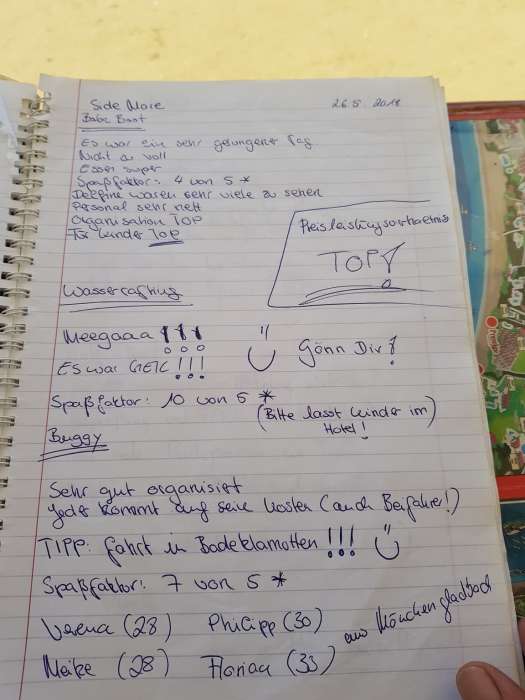 Side More
26.5. 2018
Babe Boot
Es war ein sehr gelungener Tag
Nicht zu voll
Essen super
Spaßfaktor: 4 von 5 *
Delfine waren sehr viele zu sehen
Personal sehr nett
Organisation TOP
Für Kinder TOP
Preisleistungsverhältnis
TOP!
Wasserrafting
Meegaaa !!!
Es war GEIL !!!
Gönn Dir!
Spaßfaktor: 10 von 5 *
(Bitte lasst Kinder im
Hotel!)
Buggy
Sehr gut organisiert
Jeder kommt auf seine Kosten (auch Beifahrer!)
TIPP: Fahrt in Badeklamotten !!!
Spaßfaktor: 7 von 5 *
Verena (28) Philipp (30)
Meike (28) Florian (33) aus Mönchengladbach